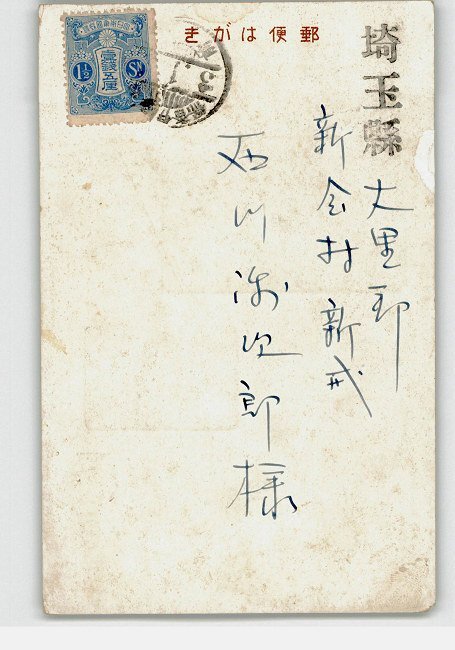 郵便はがき
大日本帝國郵便
壹錢五厘
1½ Sn
埼玉縣
大里郡
新会村新戒
石川浅次郎様